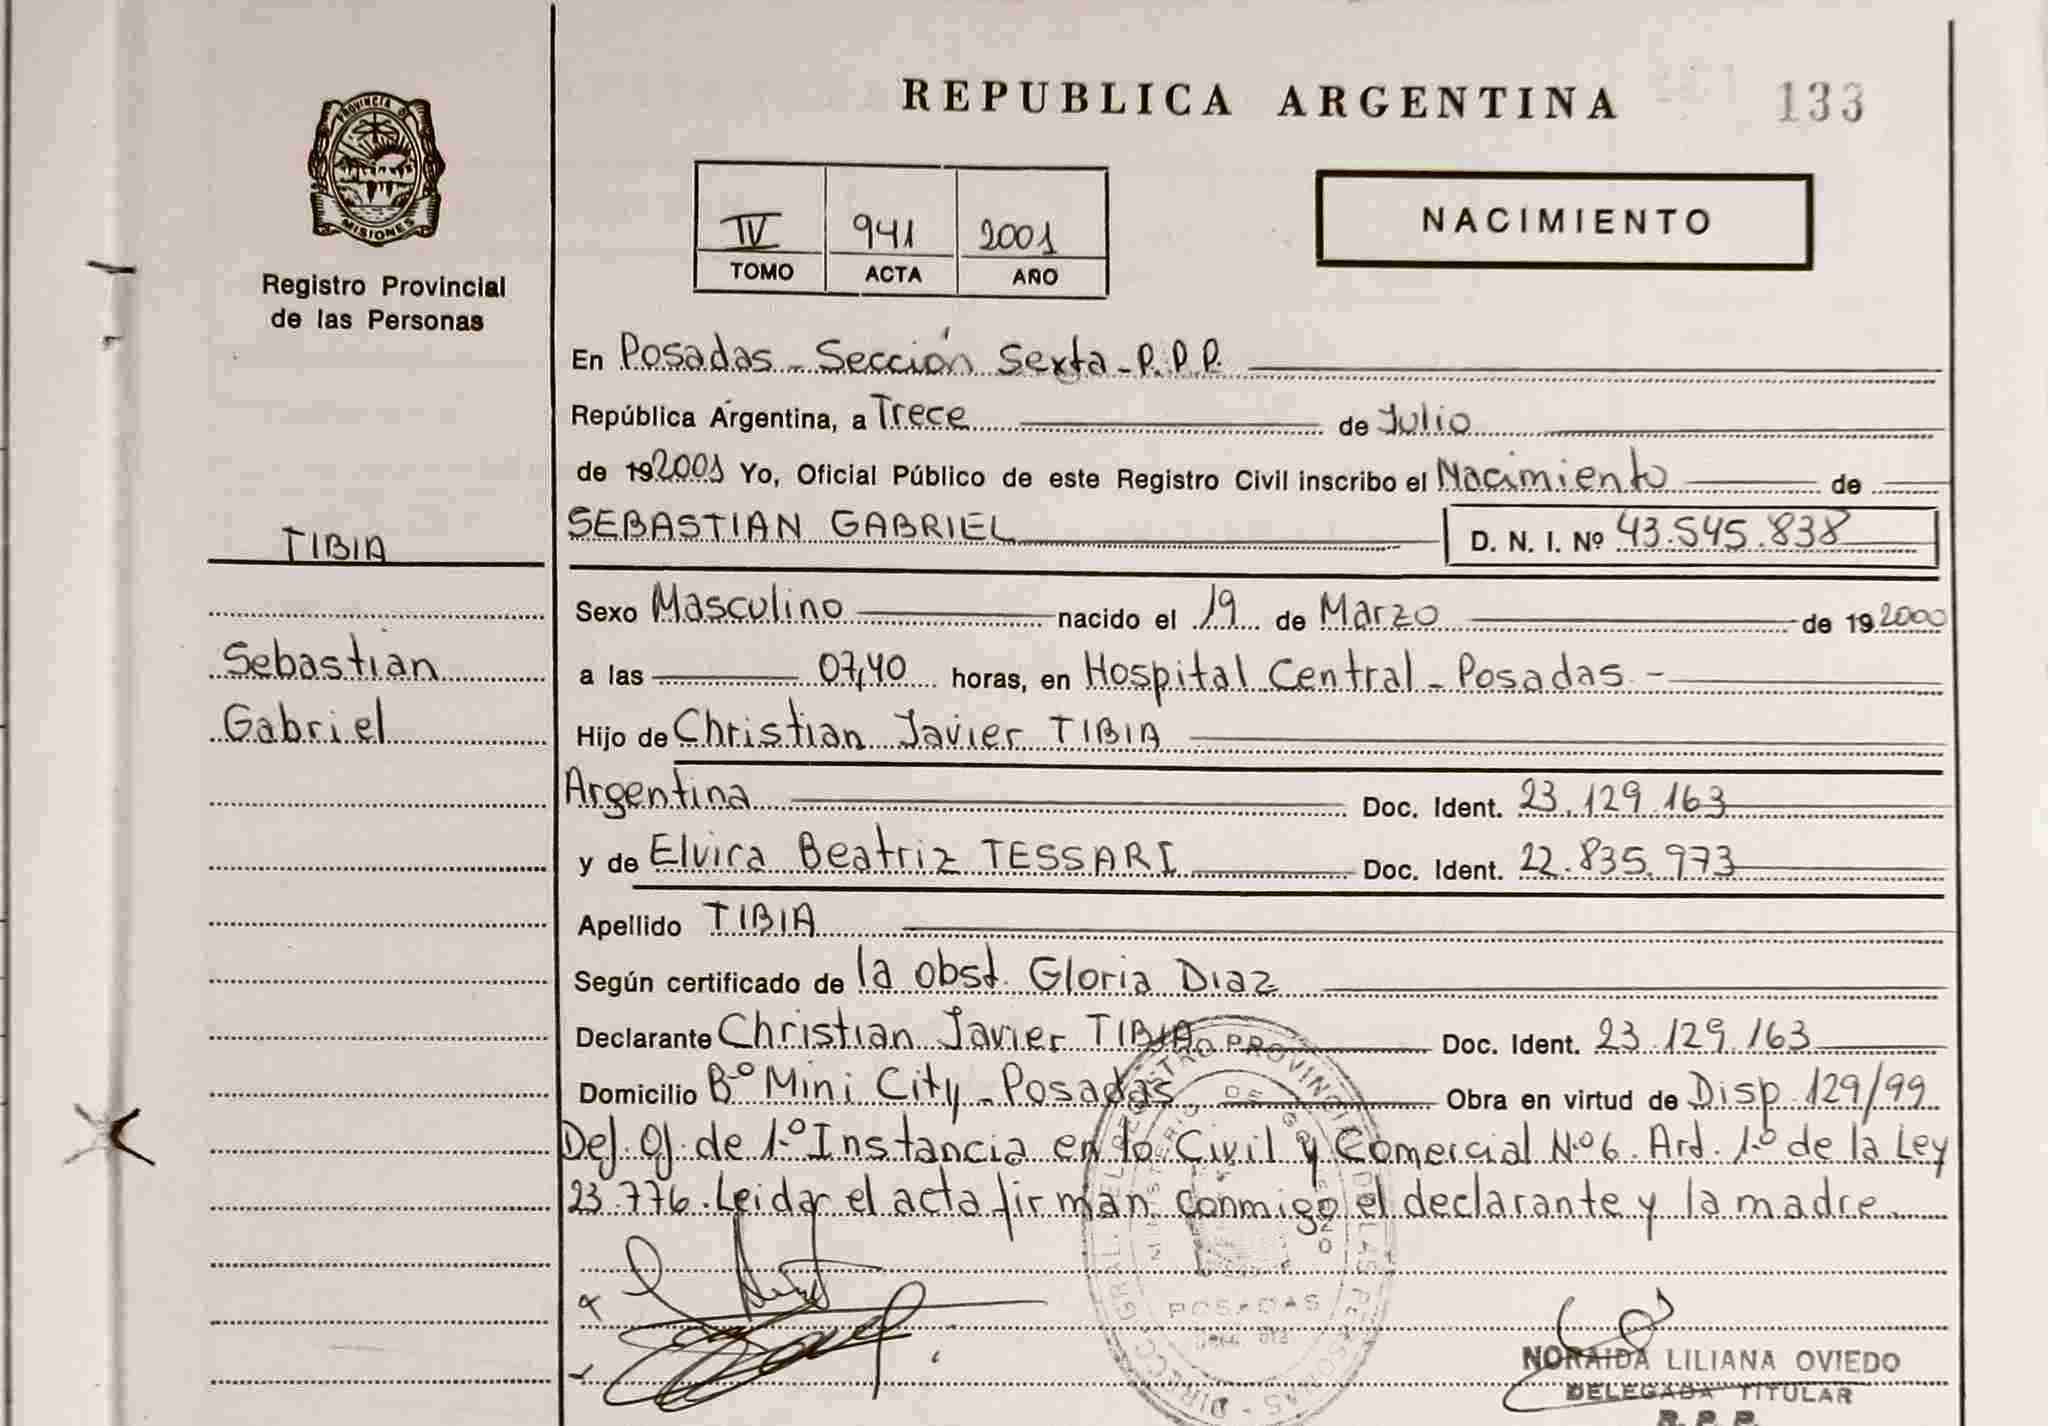 REPUBLICA ARGENTINA
133
PROVINCIA D
MISIONES
Registro Provincial
de las Personas
IV 941 2001
TOMO ACTA AÑO
NACIMIENTO
En Posadas - Sección Sexta - P.P.P.
República Argentina, a Trece de Julio
de 192001 Yo, Oficial Público de este Registro Civil inscribo el Nacimiento de
TIBIA
SEBASTIAN GABRIEL D. N. I. Nº 43.545.838
Sexo Masculino nacido el 19 de Marzo de 19 2000
Sebastian
Gabriel
a las 07,40 horas, en Hospital Central - Posadas -
Hijo de Christian Javier TIBIA
Argentina Doc. Ident. 23.129.163
y de Elvira Beatriz TESSARI Doc. Ident. 22.835.973
Apellido TIBIA
Según certificado de la obst. Gloria Diaz
Declarante Christian Javier TIBIA Doc. Ident. 23.129.163
Domicilio Bº Mini City - Posadas Obra en virtud de Disp. 129/99
Def. Of. de 1.º Instancia en lo Civil y Comercial N.º 6. Art. 1.º de la Ley
23.776. Leida el acta firman conmigo el declarante y la madre.
POSADAS
NORAIDA LILIANA OVIEDO
DELEGADA TITULAR
R. P. P.